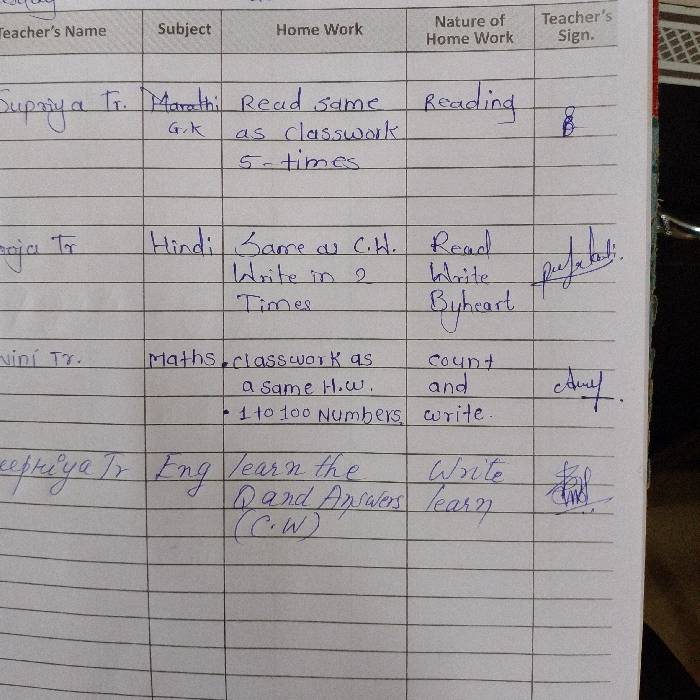 Teacher's Name Subject Home Work Nature of Home Work Teacher's Sign.
Supriya Tr. Marathi Read same Reading
G.K as classwork
5-times
Tr Hindi Same as C.W. Read
Write in 2 Write
Times Byheart
Tr. Maths • classwork as count
a same H.W. and
• 1 to 100 Numbers. write.
Tr Eng learn the Write
Q and Answers learn
(C.W)